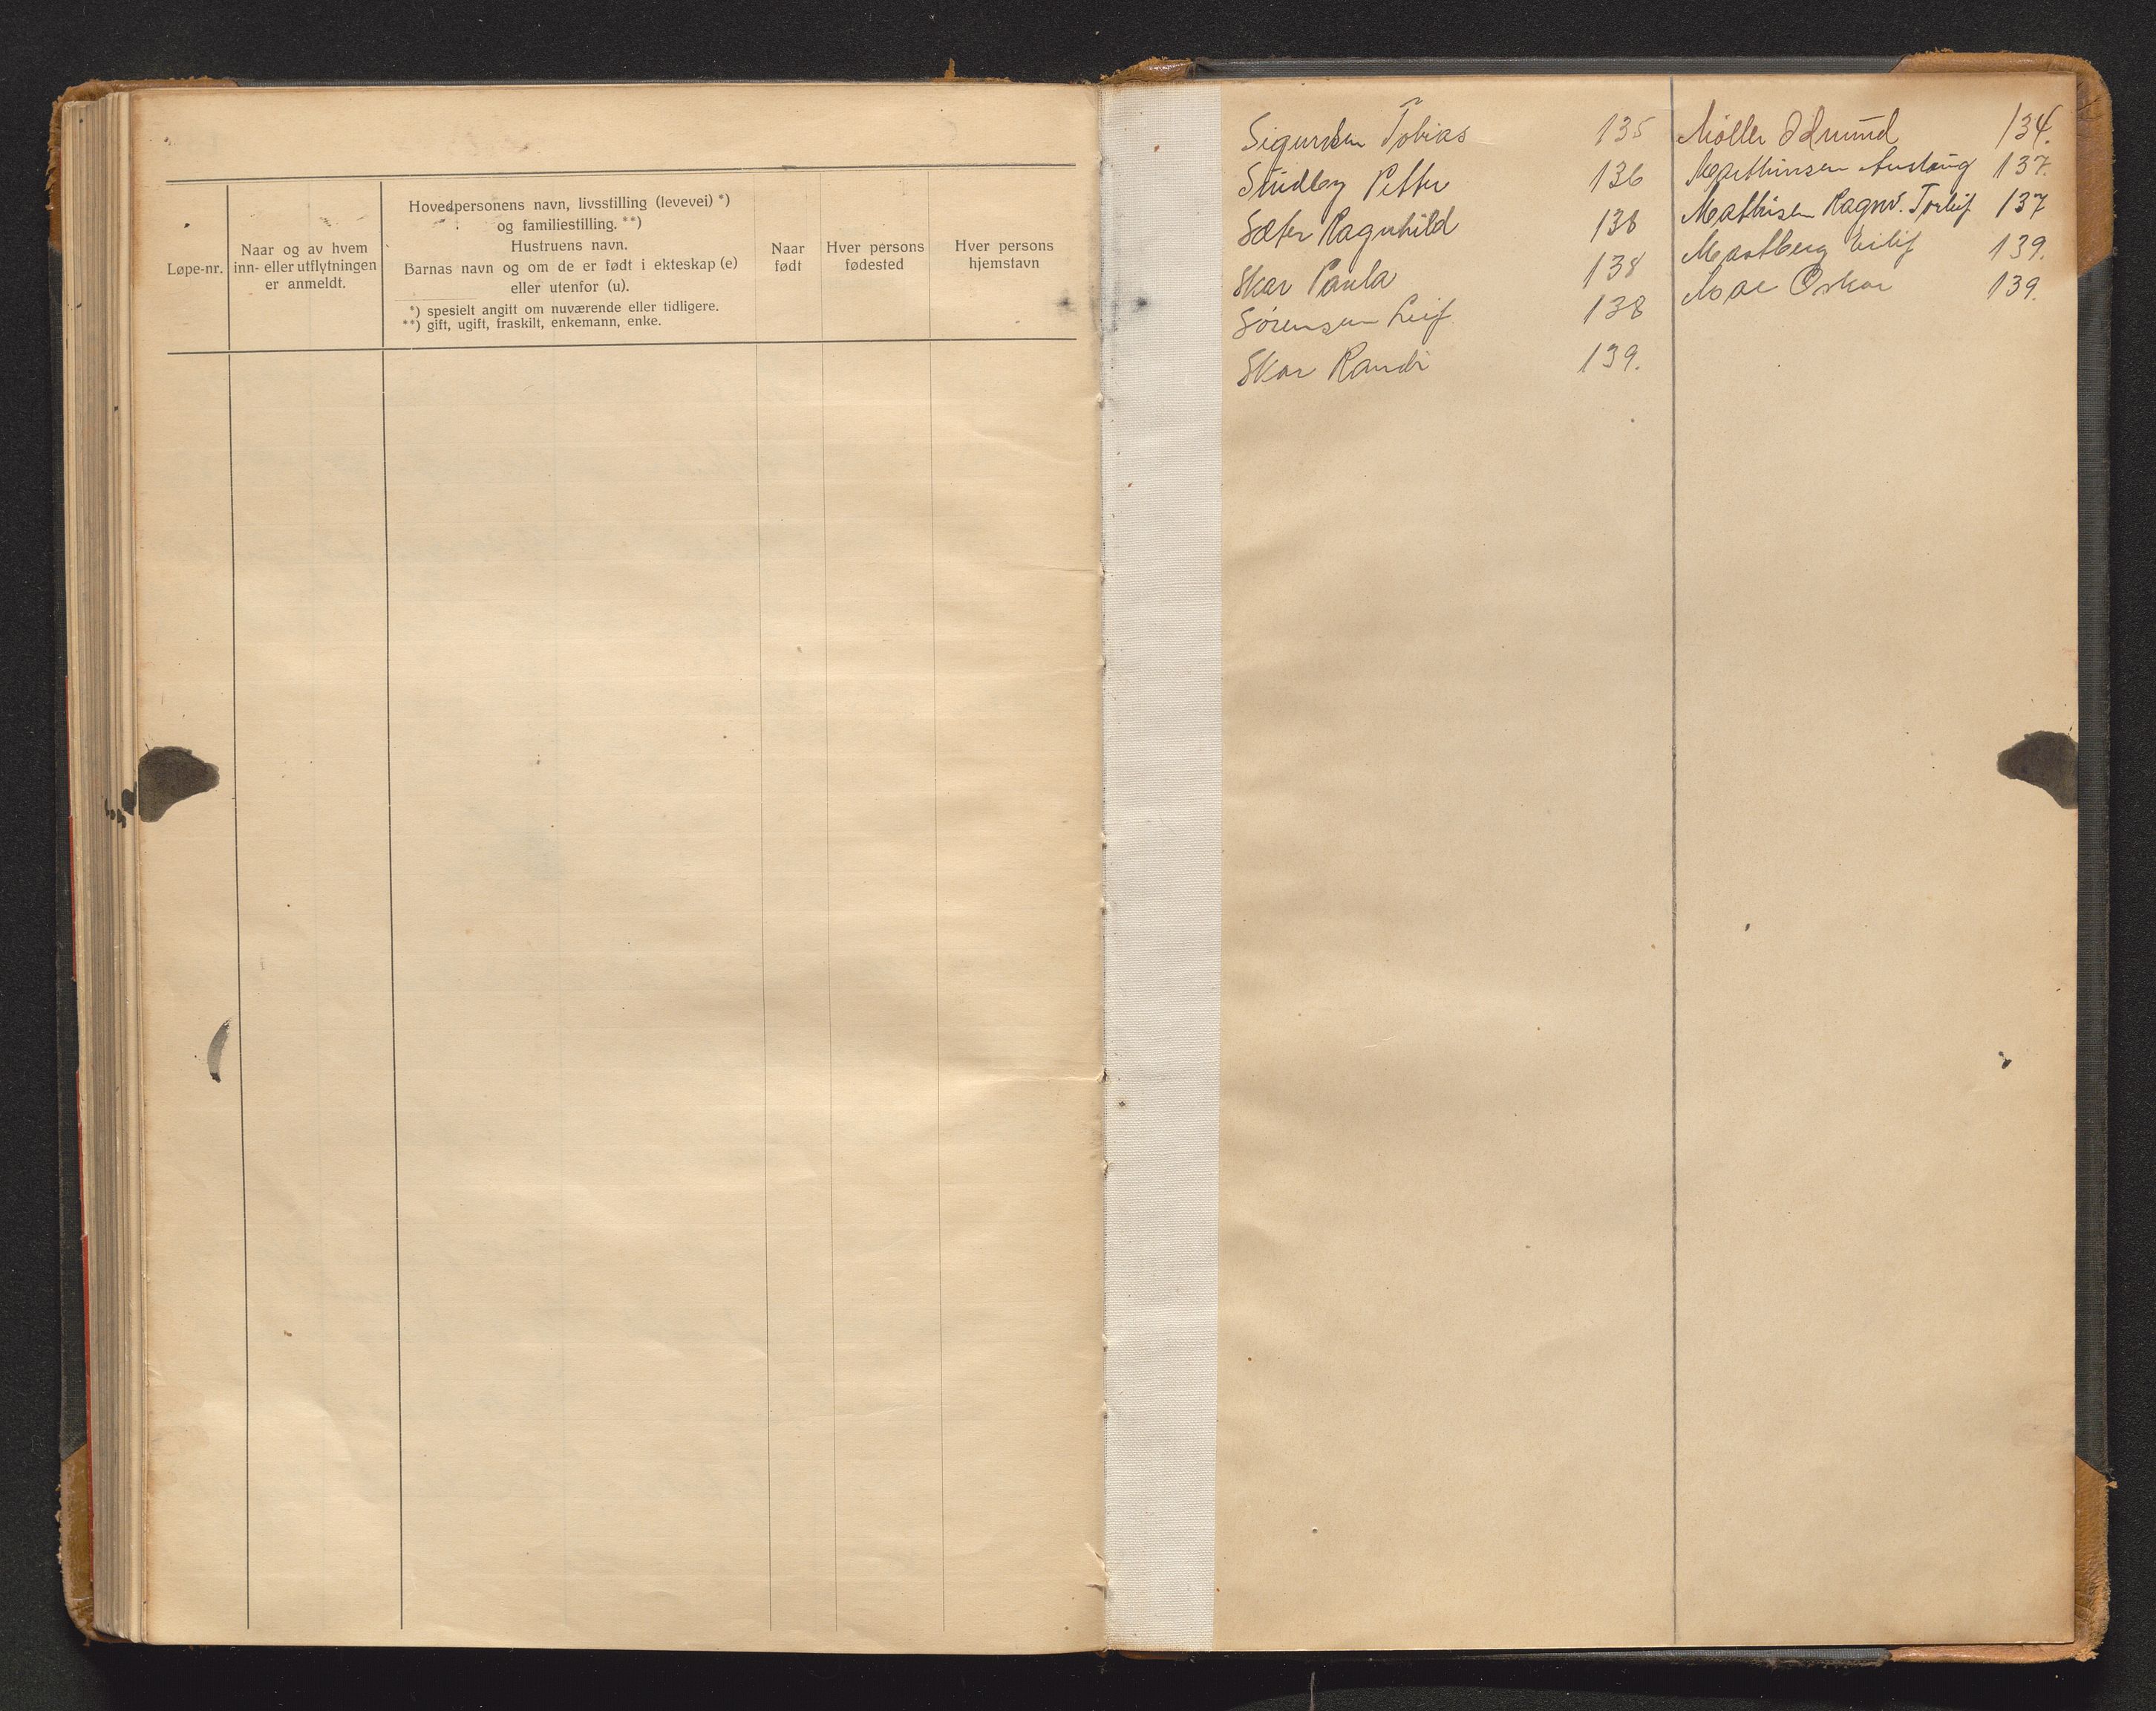 Løpe-nr.
Naar og av hvem
inn- eller utflytningen
er anmeldt.
Hovedpersonens navn, livsstilling (levevei) *)
og familiestilling. **)
Hustruens navn.
Barnas navn og om de er født i ekteskap (e)
eller utenfor (u).
*) spesielt angitt om nuværende eller tidligere.
**) gift, ugift, fraskilt, enkemann, enke.
Naar
født
Hver persons
fødested
Hver persons
hjemstavn
Sigurdsen Tobias 135
Studley Petter 136
Sæter Ragnhild 138
Skar Paula 138
Sörensen Leif 138
Skar Randi 139.
Möller Edmund 134.
Marthinsen Anslaug 137.
Mathisen Ragnv. Torleif 137
Mastberg Eilif 139.
Moe Oskar 139.